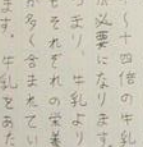 〜十四倍の牛乳
が必要になります。
つまり、牛乳より
もそれぞれの栄養
が多く含まれてい
ます。牛乳をあた